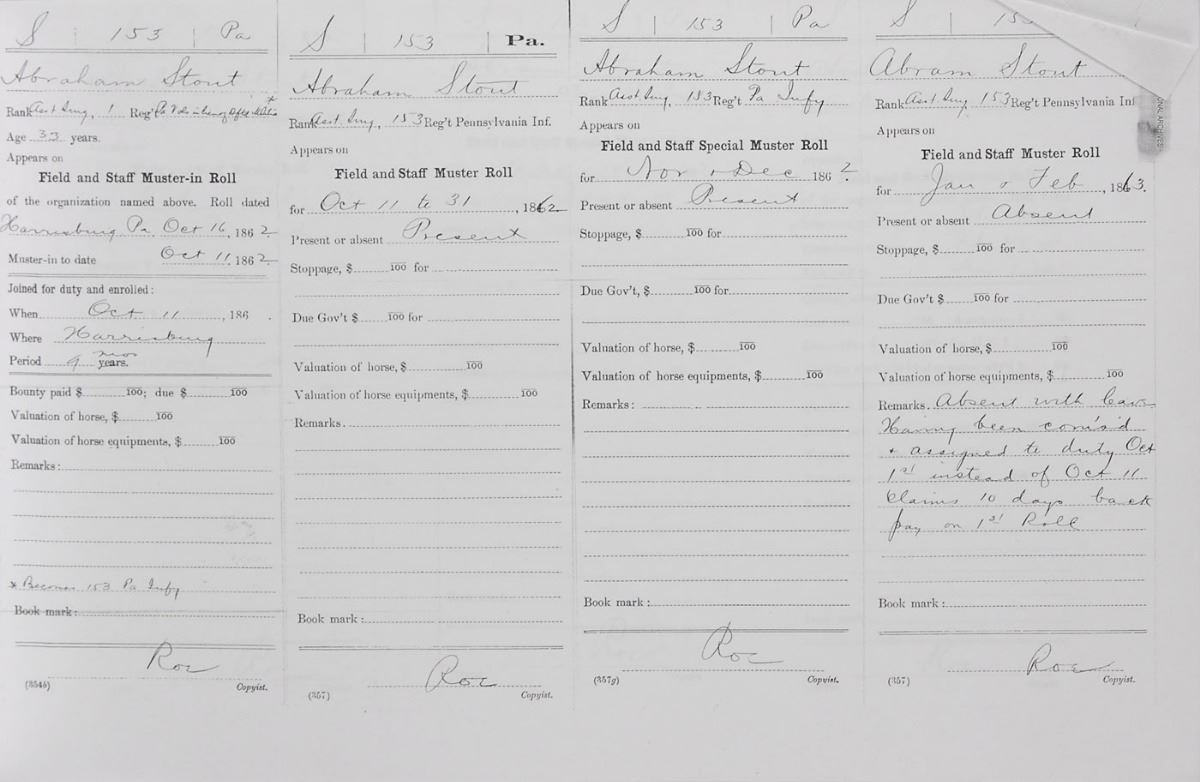 S | 153 | Pa
Abraham Stout
Rank Asst Surg, 1 Reg't Pa
Age 33 years.
Appears on
Field and Staff Muster-in Roll
of the organization named above. Roll dated
Harrisburg Pa. Oct 16, 1862
Muster-in to date Oct 11, 1862
Joined for duty and enrolled:
When Oct 11, 186 .
Where Harrisburg
Period 9 mos years.
Bounty paid $ 100; due $ 100
Valuation of horse, $ 100
Valuation of horse equipments, $ 100
Remarks:
* Becomes 153 Pa Infy
Book mark:
Roe
(354b) Copyist.
S | 153 | Pa.
Abraham Stout
Rank Asst Surg, 153 Reg't Pennsylvania Inf.
Appears on
Field and Staff Muster Roll
for Oct 11 to 31, 1862
Present or absent Present
Stoppage, $ 100 for
Due Gov't $ 100 for
Valuation of horse, $ 100
Valuation of horse equipments, $ 100
Remarks.
Book mark:
Roe
(357) Copyist.
S | 153 | Pa
Abraham Stout
Rank Asst Surg, 153 Reg't Pa Infy
Appears on
Field and Staff Special Muster Roll
for Nov & Dec 1862.
Present or absent Present
Stoppage, $ 100 for
Due Gov't, $ 100 for
Valuation of horse, $ 100
Valuation of horse equipments, $ 100
Remarks:
Book mark:
Roe
(357g) Copyist.
S | 153
Abram Stout
Rank Asst Surg, 153 Reg't Pennsylvania Inf
Appears on
Field and Staff Muster Roll
for Jan & Feb, 1863.
Present or absent Absent
Stoppage, $ 100 for
Due Gov't $ 100 for
Valuation of horse, $ 100
Valuation of horse equipments, $ 100
Remarks. Absent with leave
Having been comis'd
& assigned to duty Oct
1st instead of Oct 11
Claims 10 days back
pay on 1st Roll
Book mark:
Roe
(357) Copyist.